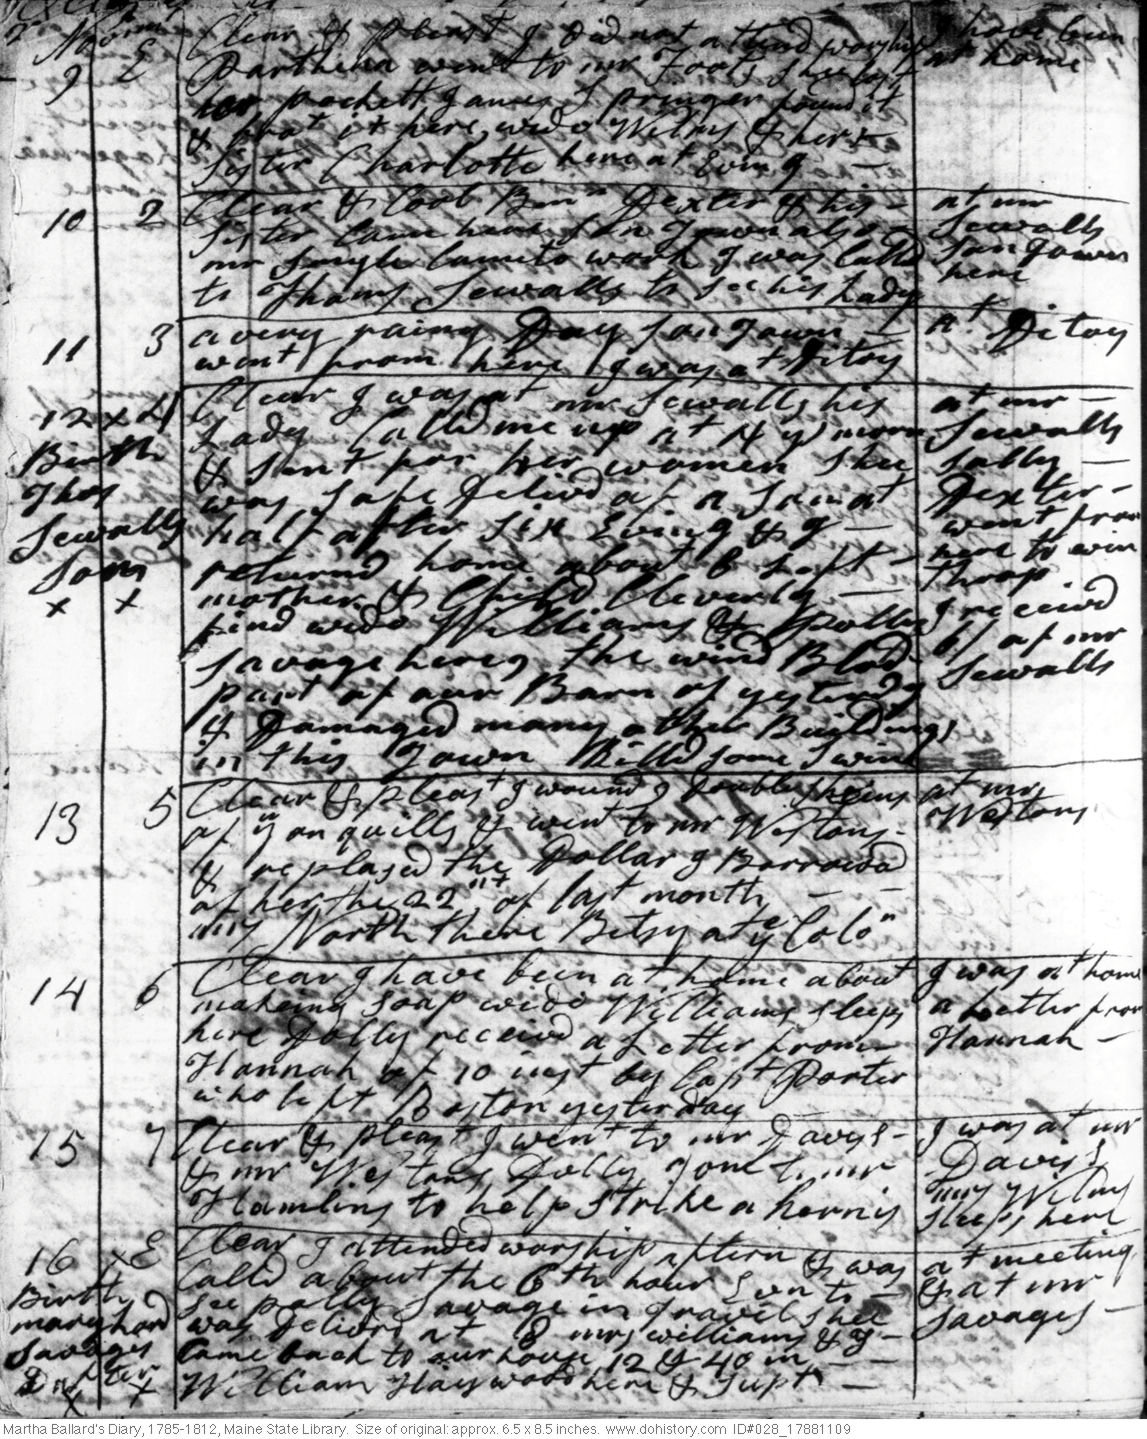 Novm
9 E Clear & pleast I did not attend worship I have been
Parthena went to mr Foots shee lost at home
her pockett James Springer found it
& brot it here, wido Wilms & her
sister Charlotte here at Evng
10 2 Clear & Cool Benn Dexter & his at mr
sister Came here son Town also Sewalls
mr Smyle Came to work I was Calld son Town
to Thoms Sewalls to see his Lady here
11 3 a very rainy Day son Town at Ditoy
went from here I was at Ditoy
12 x 4 Clear I was at mr Sewalls his at mr
Lady Calld me up at 4 y morn Sewalls
Birth & sent for her women shee Sally
Thos was safe Delivd of a son at Dexter
Sewalls half after six Evng & I went from
son returnd home about 8 Left here to win
x x mother & Child Cleverly throp
find wido Williams & Polly I receivd
Savage here, the wind Blod 6/ of mr
part of our Barn of yesterdy Sewalls
& Damaged many other Buildings
in this Town Killd some swine
13 5 Clear & pleast I wound 9 double skeins at mr
of yarn quills & went to mr Westons Westons
& replased the Dollar I Borrowd
of her the 22nt of last month
mrs North there Betsy at ye Colon
14 6 Clear I have been at home about I was at home
makeing soap wido Williams sleeps a Letter from
here Dolly receivd a Letter from Hannah
Hannah of 10 inst by Capt Porter
who left Boston yesterday
15 7 Clear & pleast I went to mr Daviss I was at mr
& mr Westons, Dolly gone to mr Daviss
Hamlins to help strike a harnis mrs Wilms
sleeps here
16 x E Clear I attended worship aftern & was at meeting
Birth Calld about the 6th hour Evn to & at mr
mary had see polly Savage in Travil shee Savages
Savages was Delivrd at 8 mrs williams & I
Dafter Came back to our house 12 & 40 m
x x William Haywood here & supt
Martha Ballard's Diary, 1785-1812, Maine State Library. Size of original: approx. 6.5 x 8.5 inches. www.dohistory.com ID#028_17881109